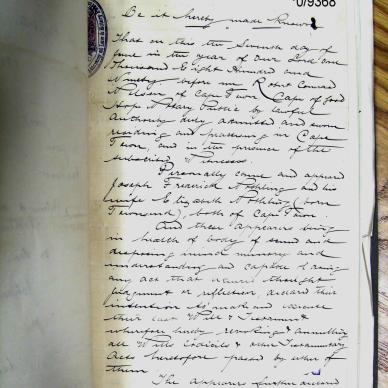 70/9368
Be it hereby made Known
That on this the Seventh day of
June in the year of our Lord one
Thousand Eight Hundred and
Ninety before me Robert Conrad
Nelson of Cape Town Cape of Good
Hope Notary Public by lawful
Authority duly admitted and sworn
residing and practising in Cape
Town, and in the presence of the
subscribing Witnesses.
Personally came and appeared
Joseph Frederick Nothling and his
wife Elizabeth Nothling (born
Townsend), both of Cape Town.
And these appearers being
in health of body of sound and
disposing mind memory and
understanding and capable of doing
any act that requires thought
judgment or reflection, declared their
intention to make and execute
their last Will & Testament
wherefore hereby revoking & annulling
all Wills Codicils & other Testamentary
Acts heretofore passed by either of
them
The appearers further declared